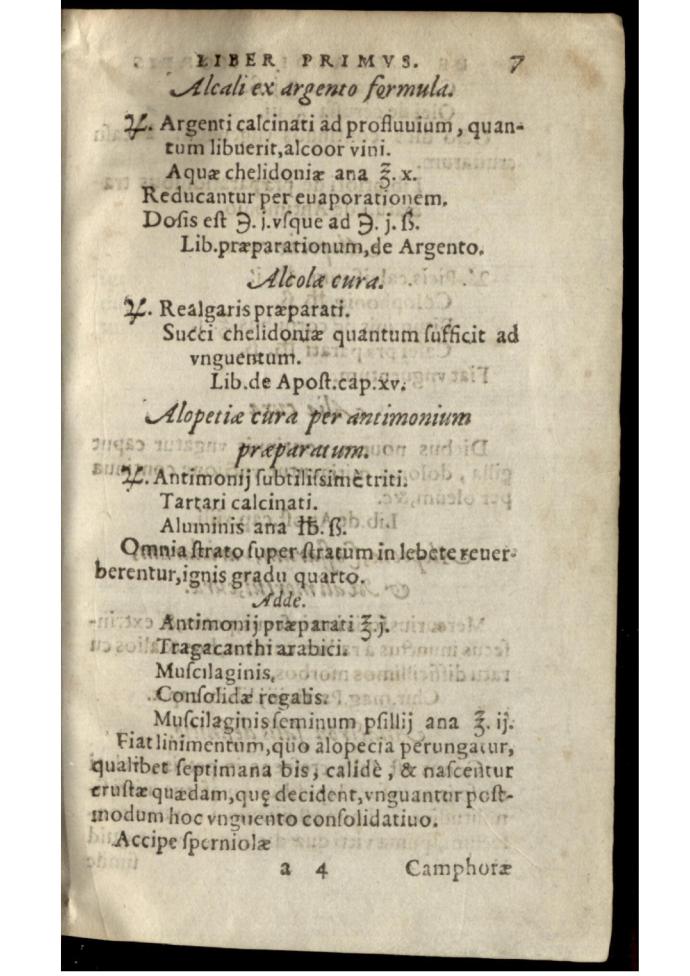 LIBER PRIMVS. 7
Alcali ex argento formula.
℞. Argenti calcinati ad profluuium, quan-
tum libuerit, alcoor vini.
Aquæ chelidoniæ ana ℥. x.
Reducantur per euaporationem.
Dosis est ℈. j. vsque ad ℈. j. ß.
Lib. præparationum, de Argento.
Alcolæ cura.
℞. Realgaris præparati.
Succi chelidoniæ quantum sufficit ad
vnguentum.
Lib. de Apost. cap. xv.
Alopetiæ cura per antimonium
præparatum.
℞. Antimonij subtilissimè triti.
Tartari calcinati.
Aluminis ana ℔. ß.
Omnia strato super stratum in lebete reuer-
berentur, ignis gradu quarto.
Adde.
Antimonij præparati ℥. j.
Tragacanthi arabici.
Muscilaginis,
Consolidæ regalis.
Muscilaginis seminum psillij ana ℥. ij.
Fiat linimentum, quo alopecia perungatur,
qualibet septimana bis, calidè, & nascentur
crustæ quædam, quę decident, vnguantur post-
modum hoc vnguento consolidatiuo.
Accipe sperniolæ
a 4 Camphoræ